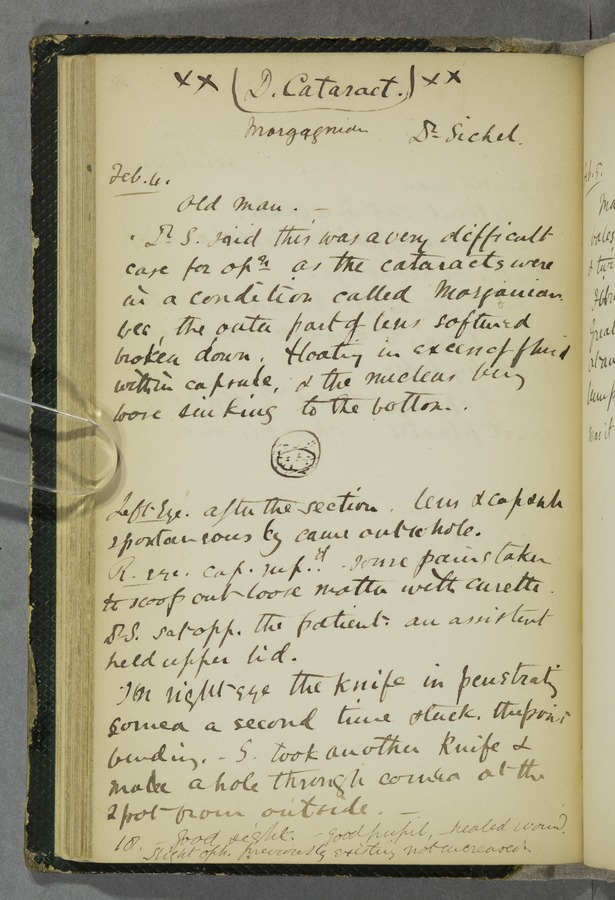 xx (D. Cataract.) xx
Morgagnian Dr Sichel.
Feb. 4.
Old man. –
Dr S. said this was a very difficult
case for opn as the cataracts were
in a condition called Morganian
bec. the outer part of lens softened
broken down. floating in excess of fluid
within capsule, & the nucleus being
loose sinking to the bottom.
Left Eye. after the section. lens & capsule
spontaneously came out whole.
R. eye. cap. rup.d some pains taken
to scoop out loose matter with curette.
Dr S. sat opp. the patient. an assistant
held upper lid.
In right eye the knife in penetrating
cornea a second time stuck. the point
bending. – S. took another knife &
made a hole through cornea at the
spot from outside. –
18. – Good sight. – Good pupil, healed wound.
Slight oph. previously existing not increased.